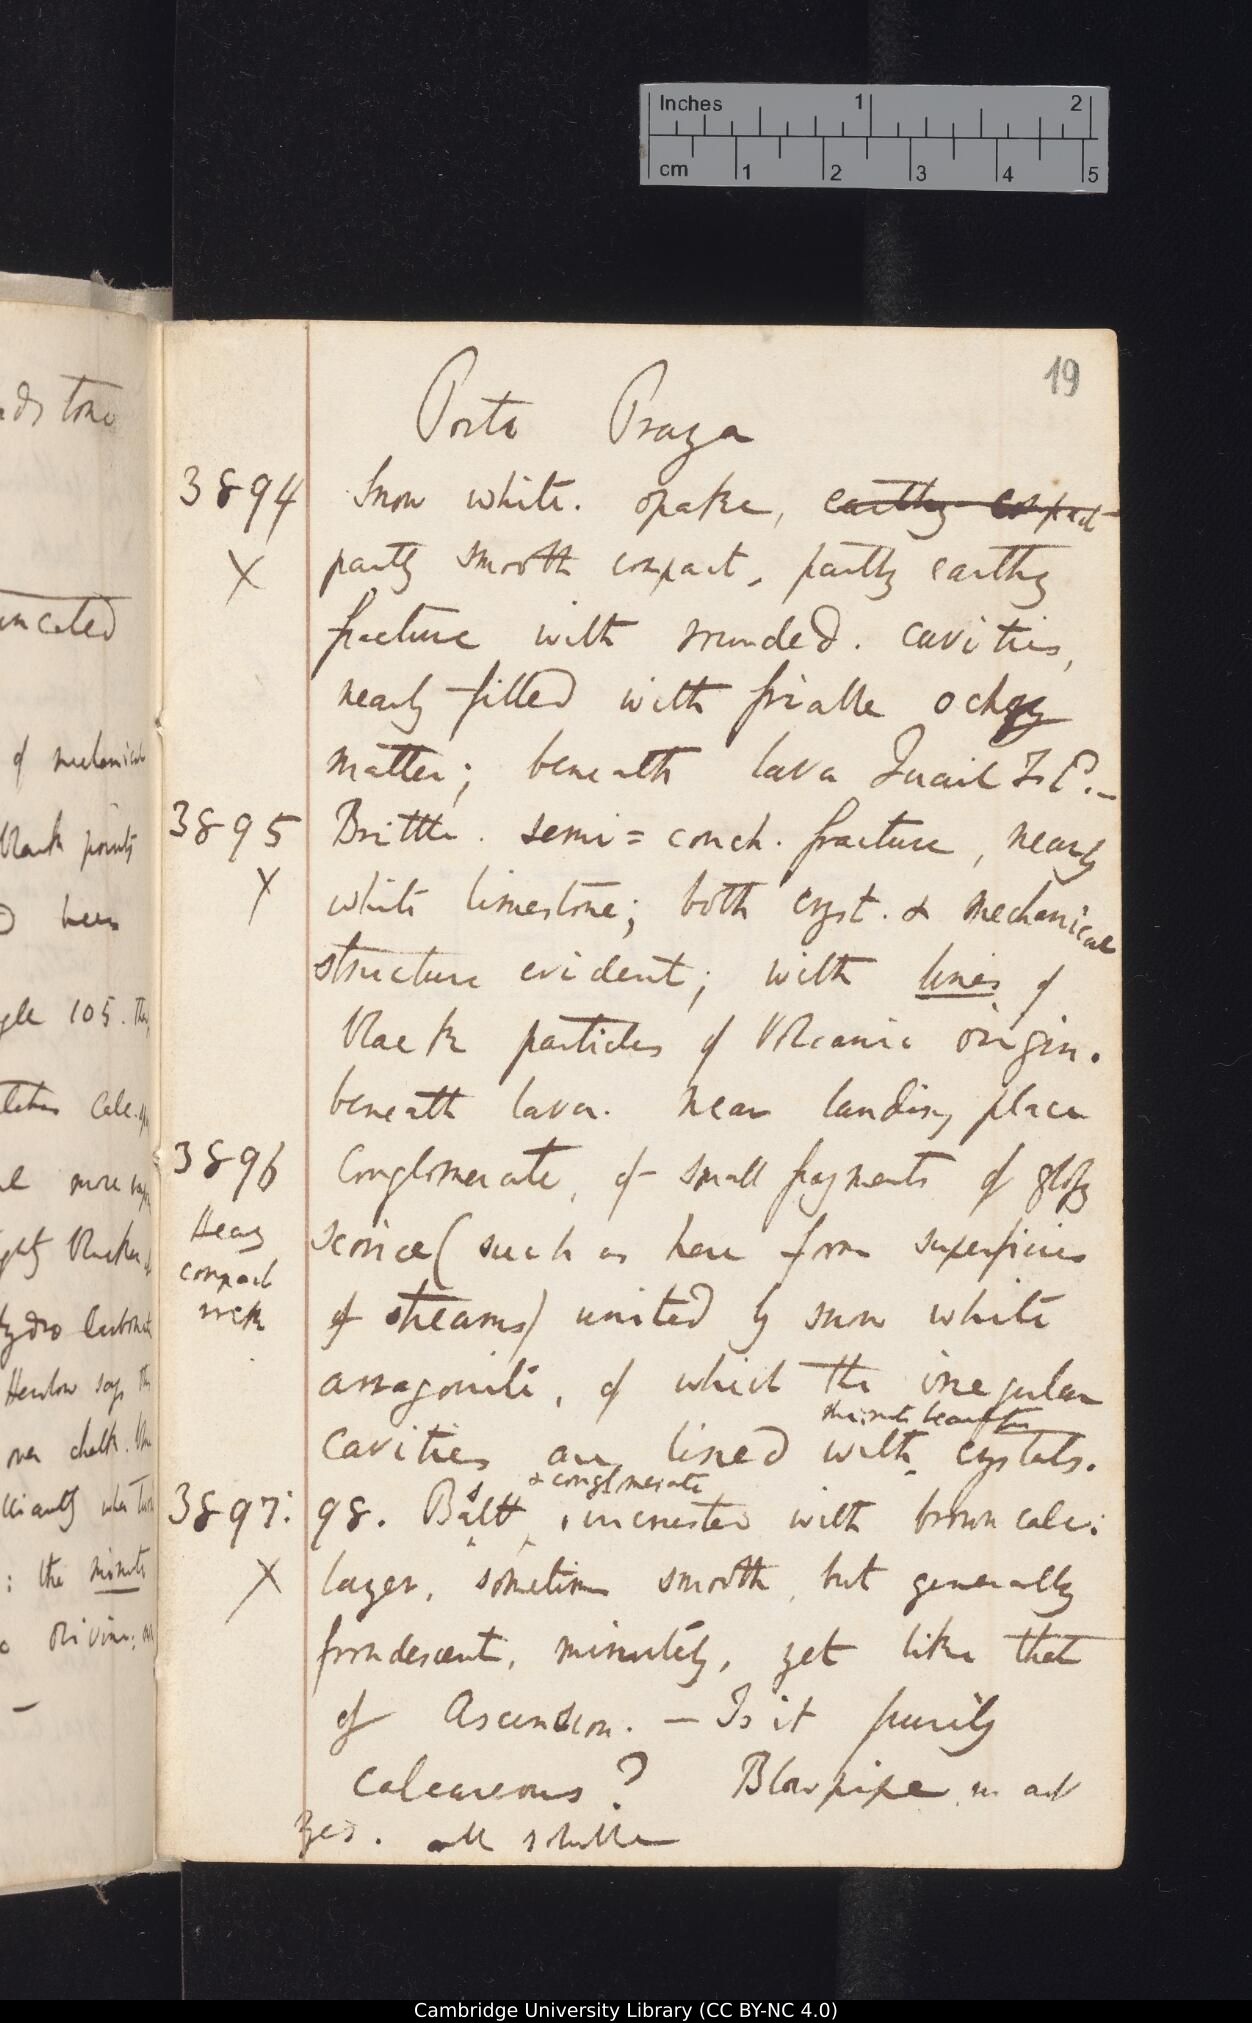 Inches 1 2
cm 1 2 3 4 5
19
Porto Praya
3894 Snow white. opake, earthy compact
X partly smooth compact, partly earthy
fracture with rounded. cavities,
nearly filled with friable ochry
matter; beneath lava Quail I.
3895 Brittle. semi = conch. fracture, nearly
X white limestone; both cryst. & mechanical
structure evident; with lines of
black particles of Volcanic origin.
beneath lava. near landing place
3896 Conglomerate, of small fragments of glossy
Heavy compact rock
scoriæ (such as here form superficies
of streams) united by snow white
arragonite, of which the irregular
minute beautiful
cavities are lined with crystals.
& conglomerate
3897: 98. Basalt, incrusted with brown calc:
X layer, sometimes smooth, but generally
frondescent, minutely, yet like that
of Ascension. — Is it purely
calcareous? Blowpipe
yes. all soluble
ds tone
uncated
of mechanical
black points
been
gle 105. they
calc.
more
Henslow says the
over chalk. the
when
: the minute
olivine:
Cambridge University Library (CC BY-NC 4.0)